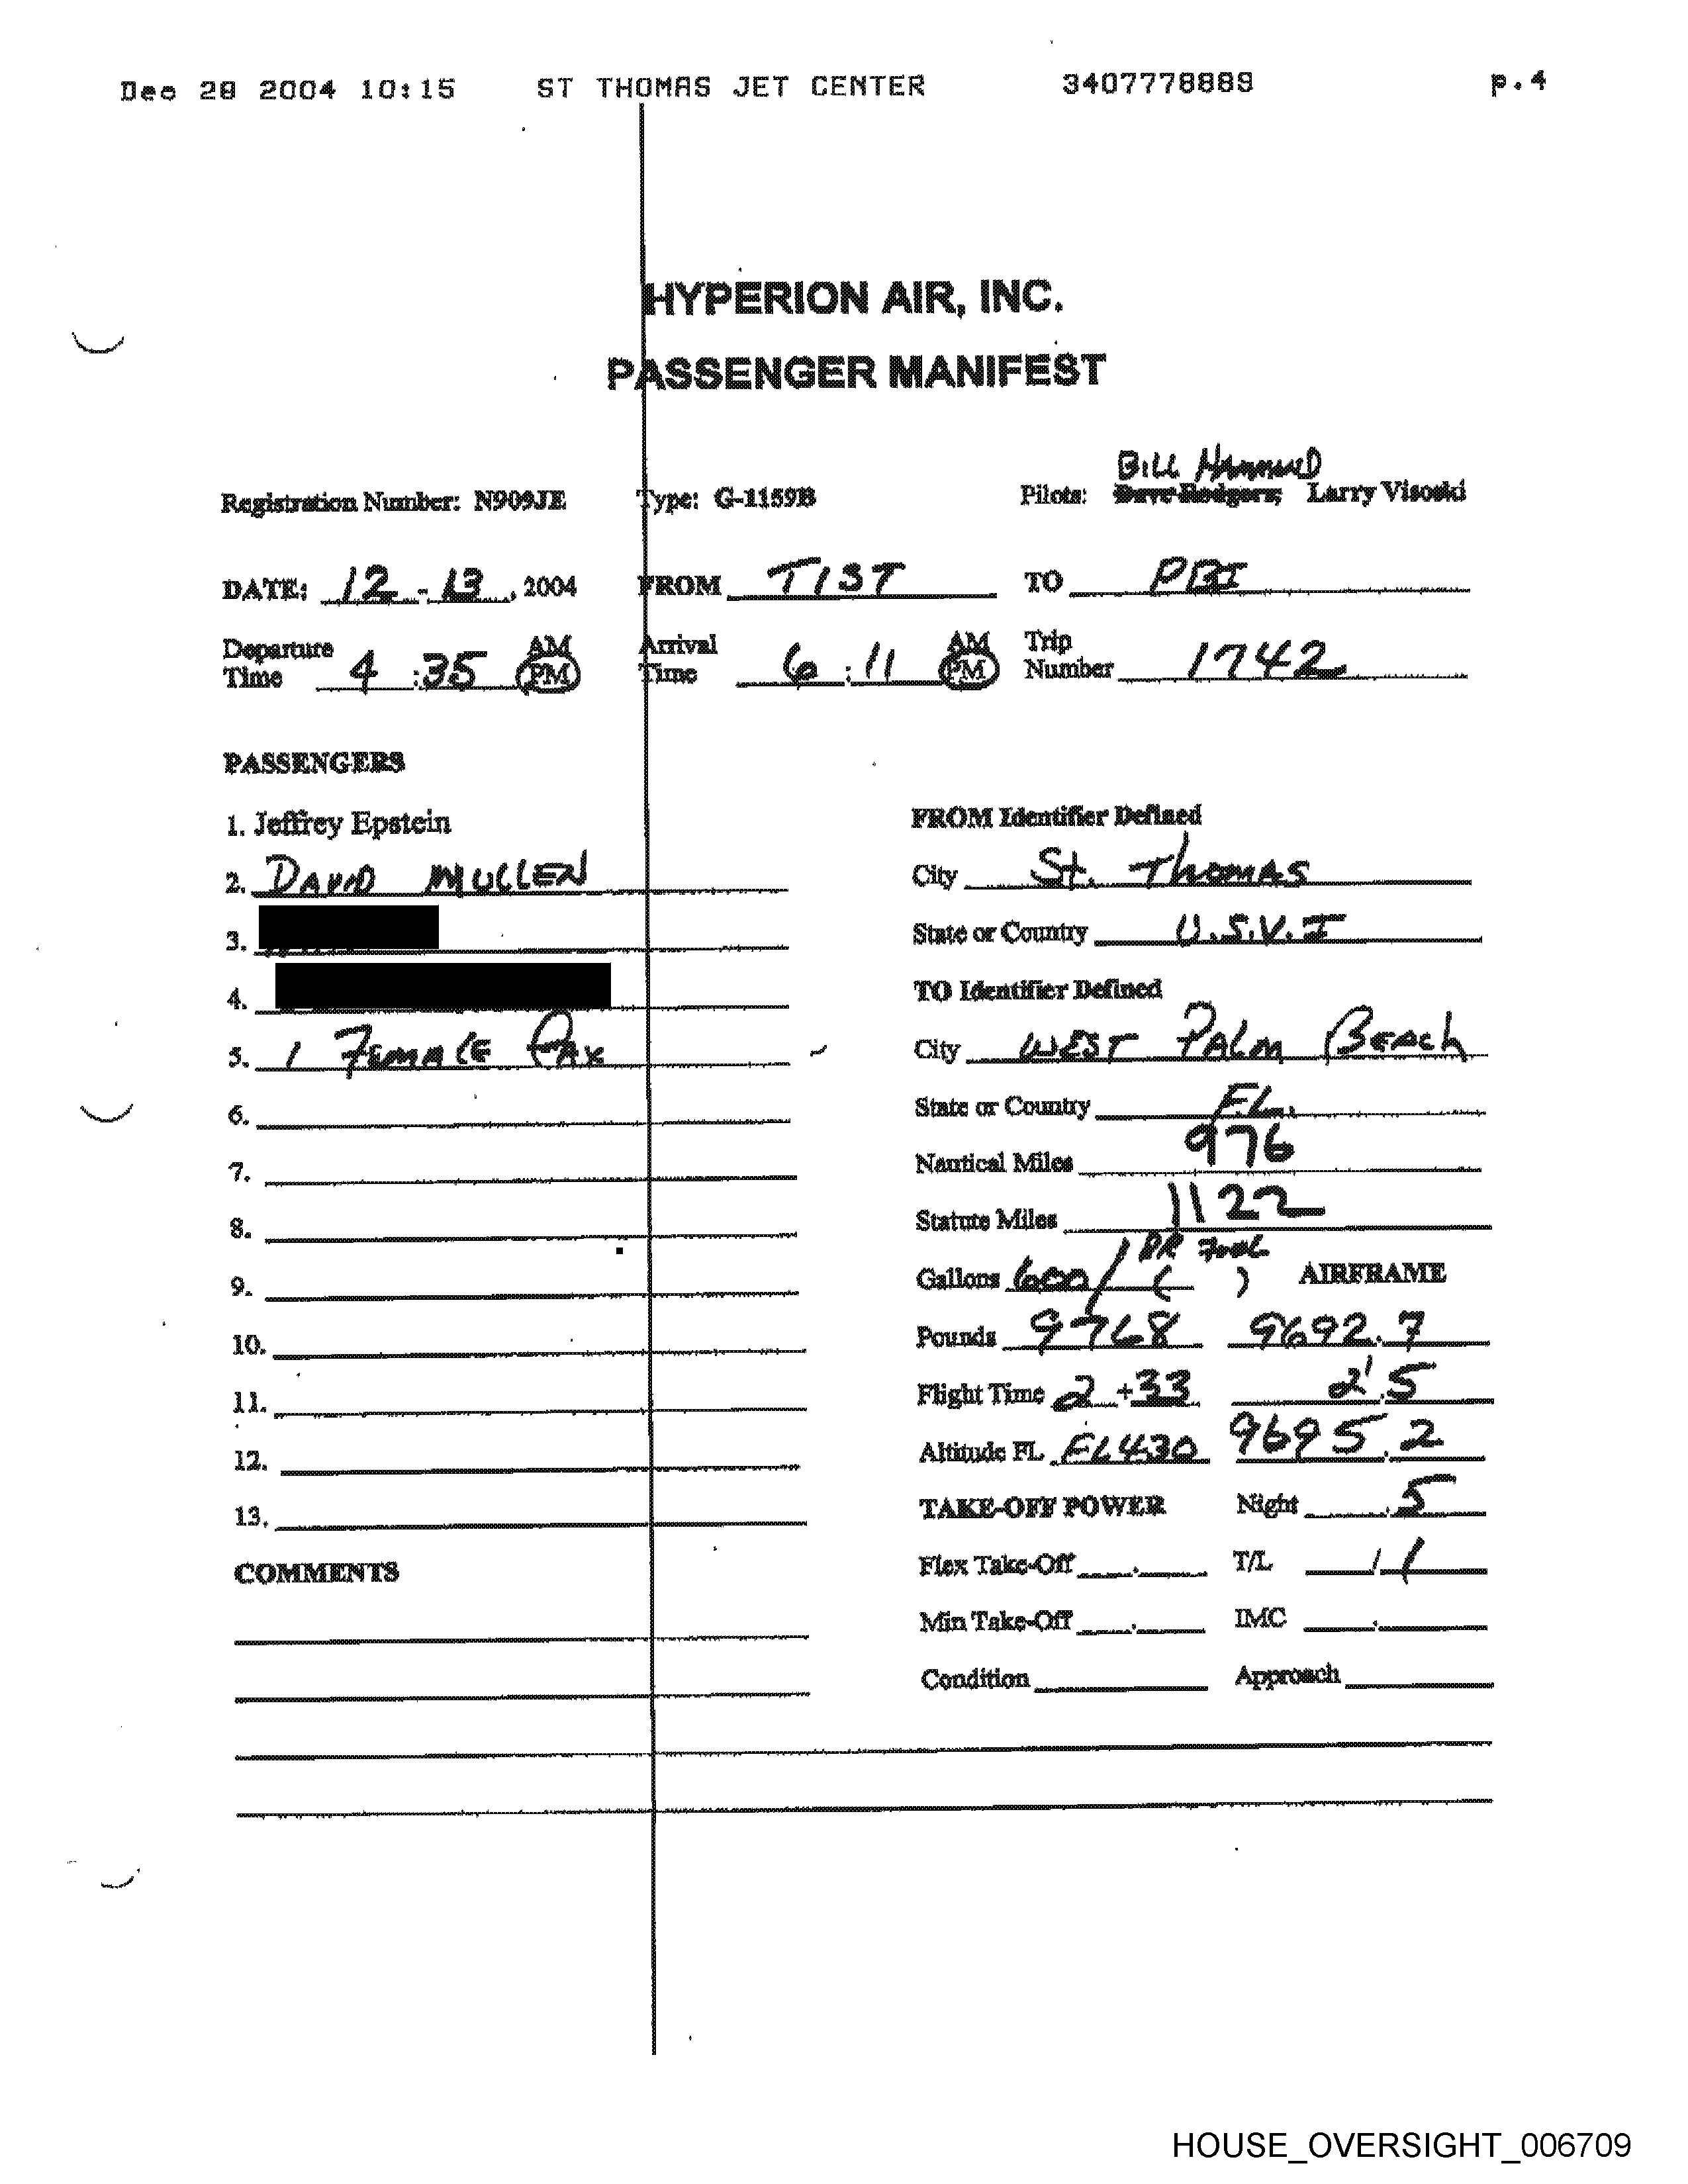 Dec 28 2004 10:15 ST THOMAS JET CENTER 3407778889 p.4
HYPERION AIR, INC.
PASSENGER MANIFEST
BILL HAMMOND
Registration Number: N909JE Type: G-1159B Pilots: Dave Rodgers, Larry Visoski
DATE: 12 - 13, 2004 FROM TIST TO PBI
Departure Time 4 :35 AM PM Arrival Time 6 : 11 AM PM Trip Number 1742
PASSENGERS
1. Jeffrey Epstein
2. DAVID MULLEN
3.
4.
5. 1 FEMALE PAX
6.
7.
8.
9.
10.
11.
12.
13.
COMMENTS
FROM Identifier Defined
City St. THOMAS
State or Country U.S.V.I
TO Identifier Defined
City WEST PALM BEACH
State or Country FL.
Nautical Miles 976
Statute Miles 1122
Gallons 600 / ( ) AIRFRAME
Pounds 9768 9692.7
Flight Time 2 + 33 2.5
Altitude FL FL430 9695.2
TAKE-OFF POWER Night .5
Flex Take-Off . T/L / 1
Min Take-Off . IMC .
Condition Approach
HOUSE_OVERSIGHT_006709